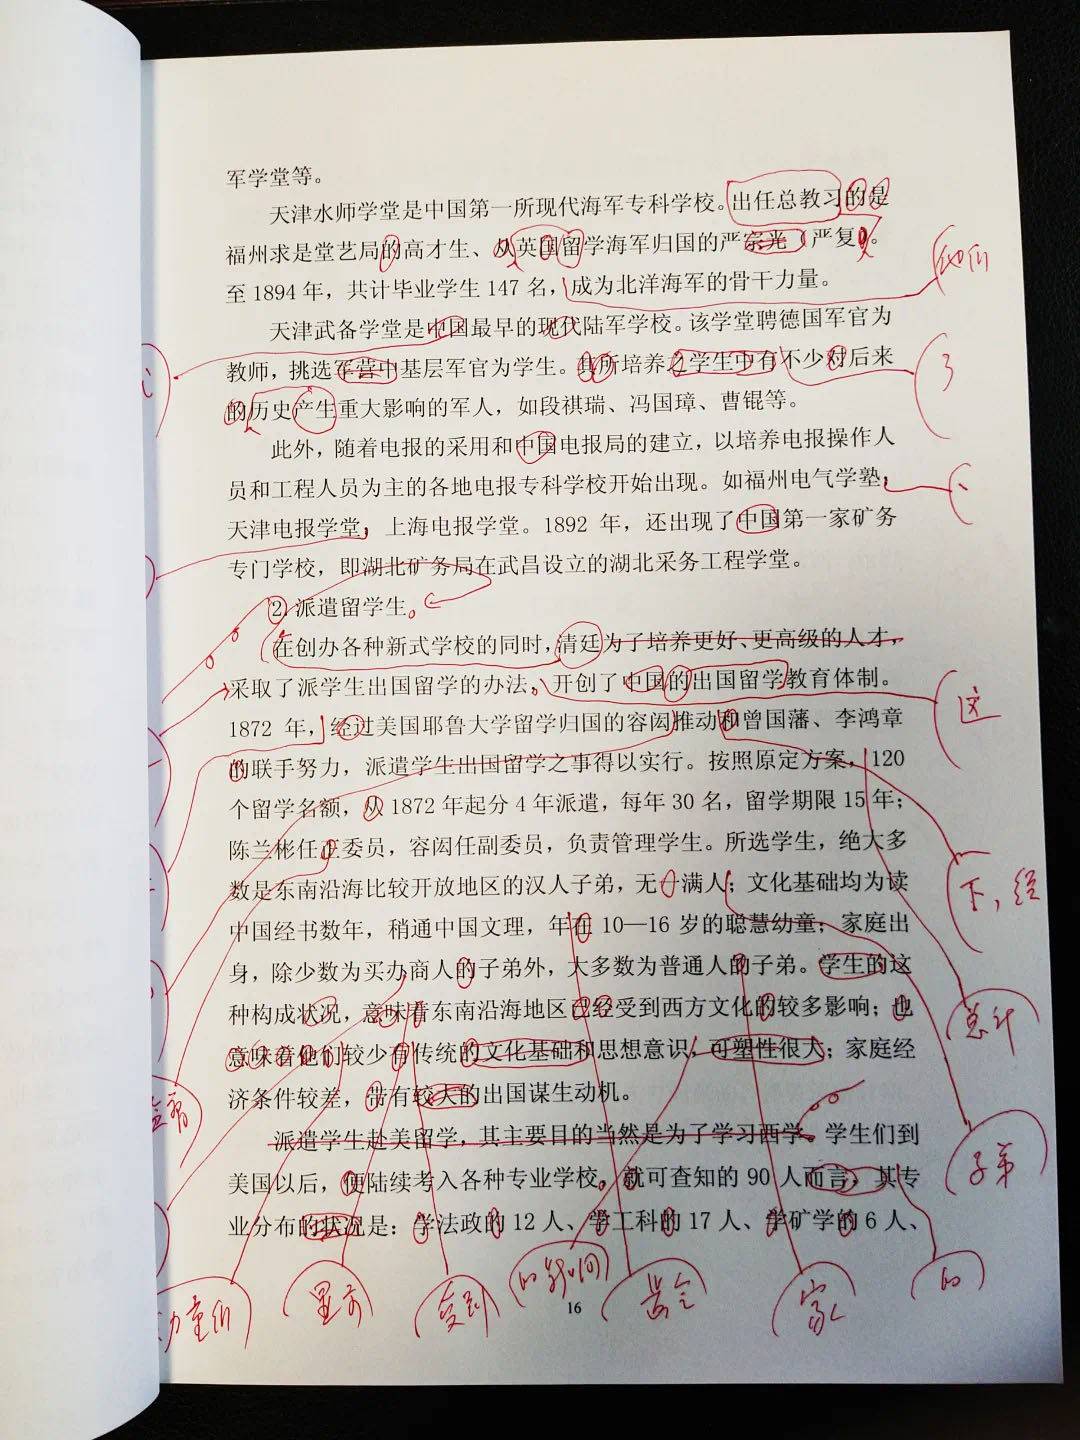 军学堂等。
天津水师学堂是中国第一所现代海军专科学校。出任总教习的是
福州求是堂艺局的高才生、从英国留学海军归国的严宗光（严复）。
至 1894 年，共计毕业学生 147 名，成为北洋海军的骨干力量。
他们
天津武备学堂是中国最早的现代陆军学校。该学堂聘德国军官为
教师，挑选军营中基层军官为学生。其所培养之学生中有不少对后来
了
的历史产生重大影响的军人，如段祺瑞、冯国璋、曹锟等。
此外，随着电报的采用和中国电报局的建立，以培养电报操作人
员和工程人员为主的各地电报专科学校开始出现。如福州电气学塾，
、
天津电报学堂，上海电报学堂。1892 年，还出现了中国第一家矿务
专门学校，即湖北矿务局在武昌设立的湖北采务工程学堂。
2. 派遣留学生。
在创办各种新式学校的同时，清廷为了培养更好、更高级的人才，
采取了派学生出国留学的办法。开创了中国的出国留学教育体制。
这
1872 年，经过美国耶鲁大学留学归国的容闳推动和曾国藩、李鸿章
的联手努力，派遣学生出国留学之事得以实行。按照原定方案，120
个留学名额，从 1872 年起分 4 年派遣，每年 30 名，留学期限 15 年；
陈兰彬任正委员，容闳任副委员，负责管理学生。所选学生，绝大多
数是东南沿海比较开放地区的汉人子弟，无一满人；文化基础均为读
下，经
中国经书数年，稍通中国文理，年在 10—16 岁的聪慧幼童；家庭出
身，除少数为买办商人的子弟外，大多数为普通人的子弟。学生的这
种构成状况，意味着东南沿海地区已经受到西方文化的较多影响；也
总计
意味着他们较少有传统的文化基础和思想意识，可塑性很大；家庭经
济条件较差，带有较大的出国谋生动机。
派遣学生赴美留学，其主要目的当然是为了学习西学。学生们到
子弟
美国以后，便陆续考入各种专业学校。就可查知的 90 人而言，其专
业分布的状况是：学法政的 12 人、学工科的 17 人、学矿学的 6 人、
童们
受到
家
的
16